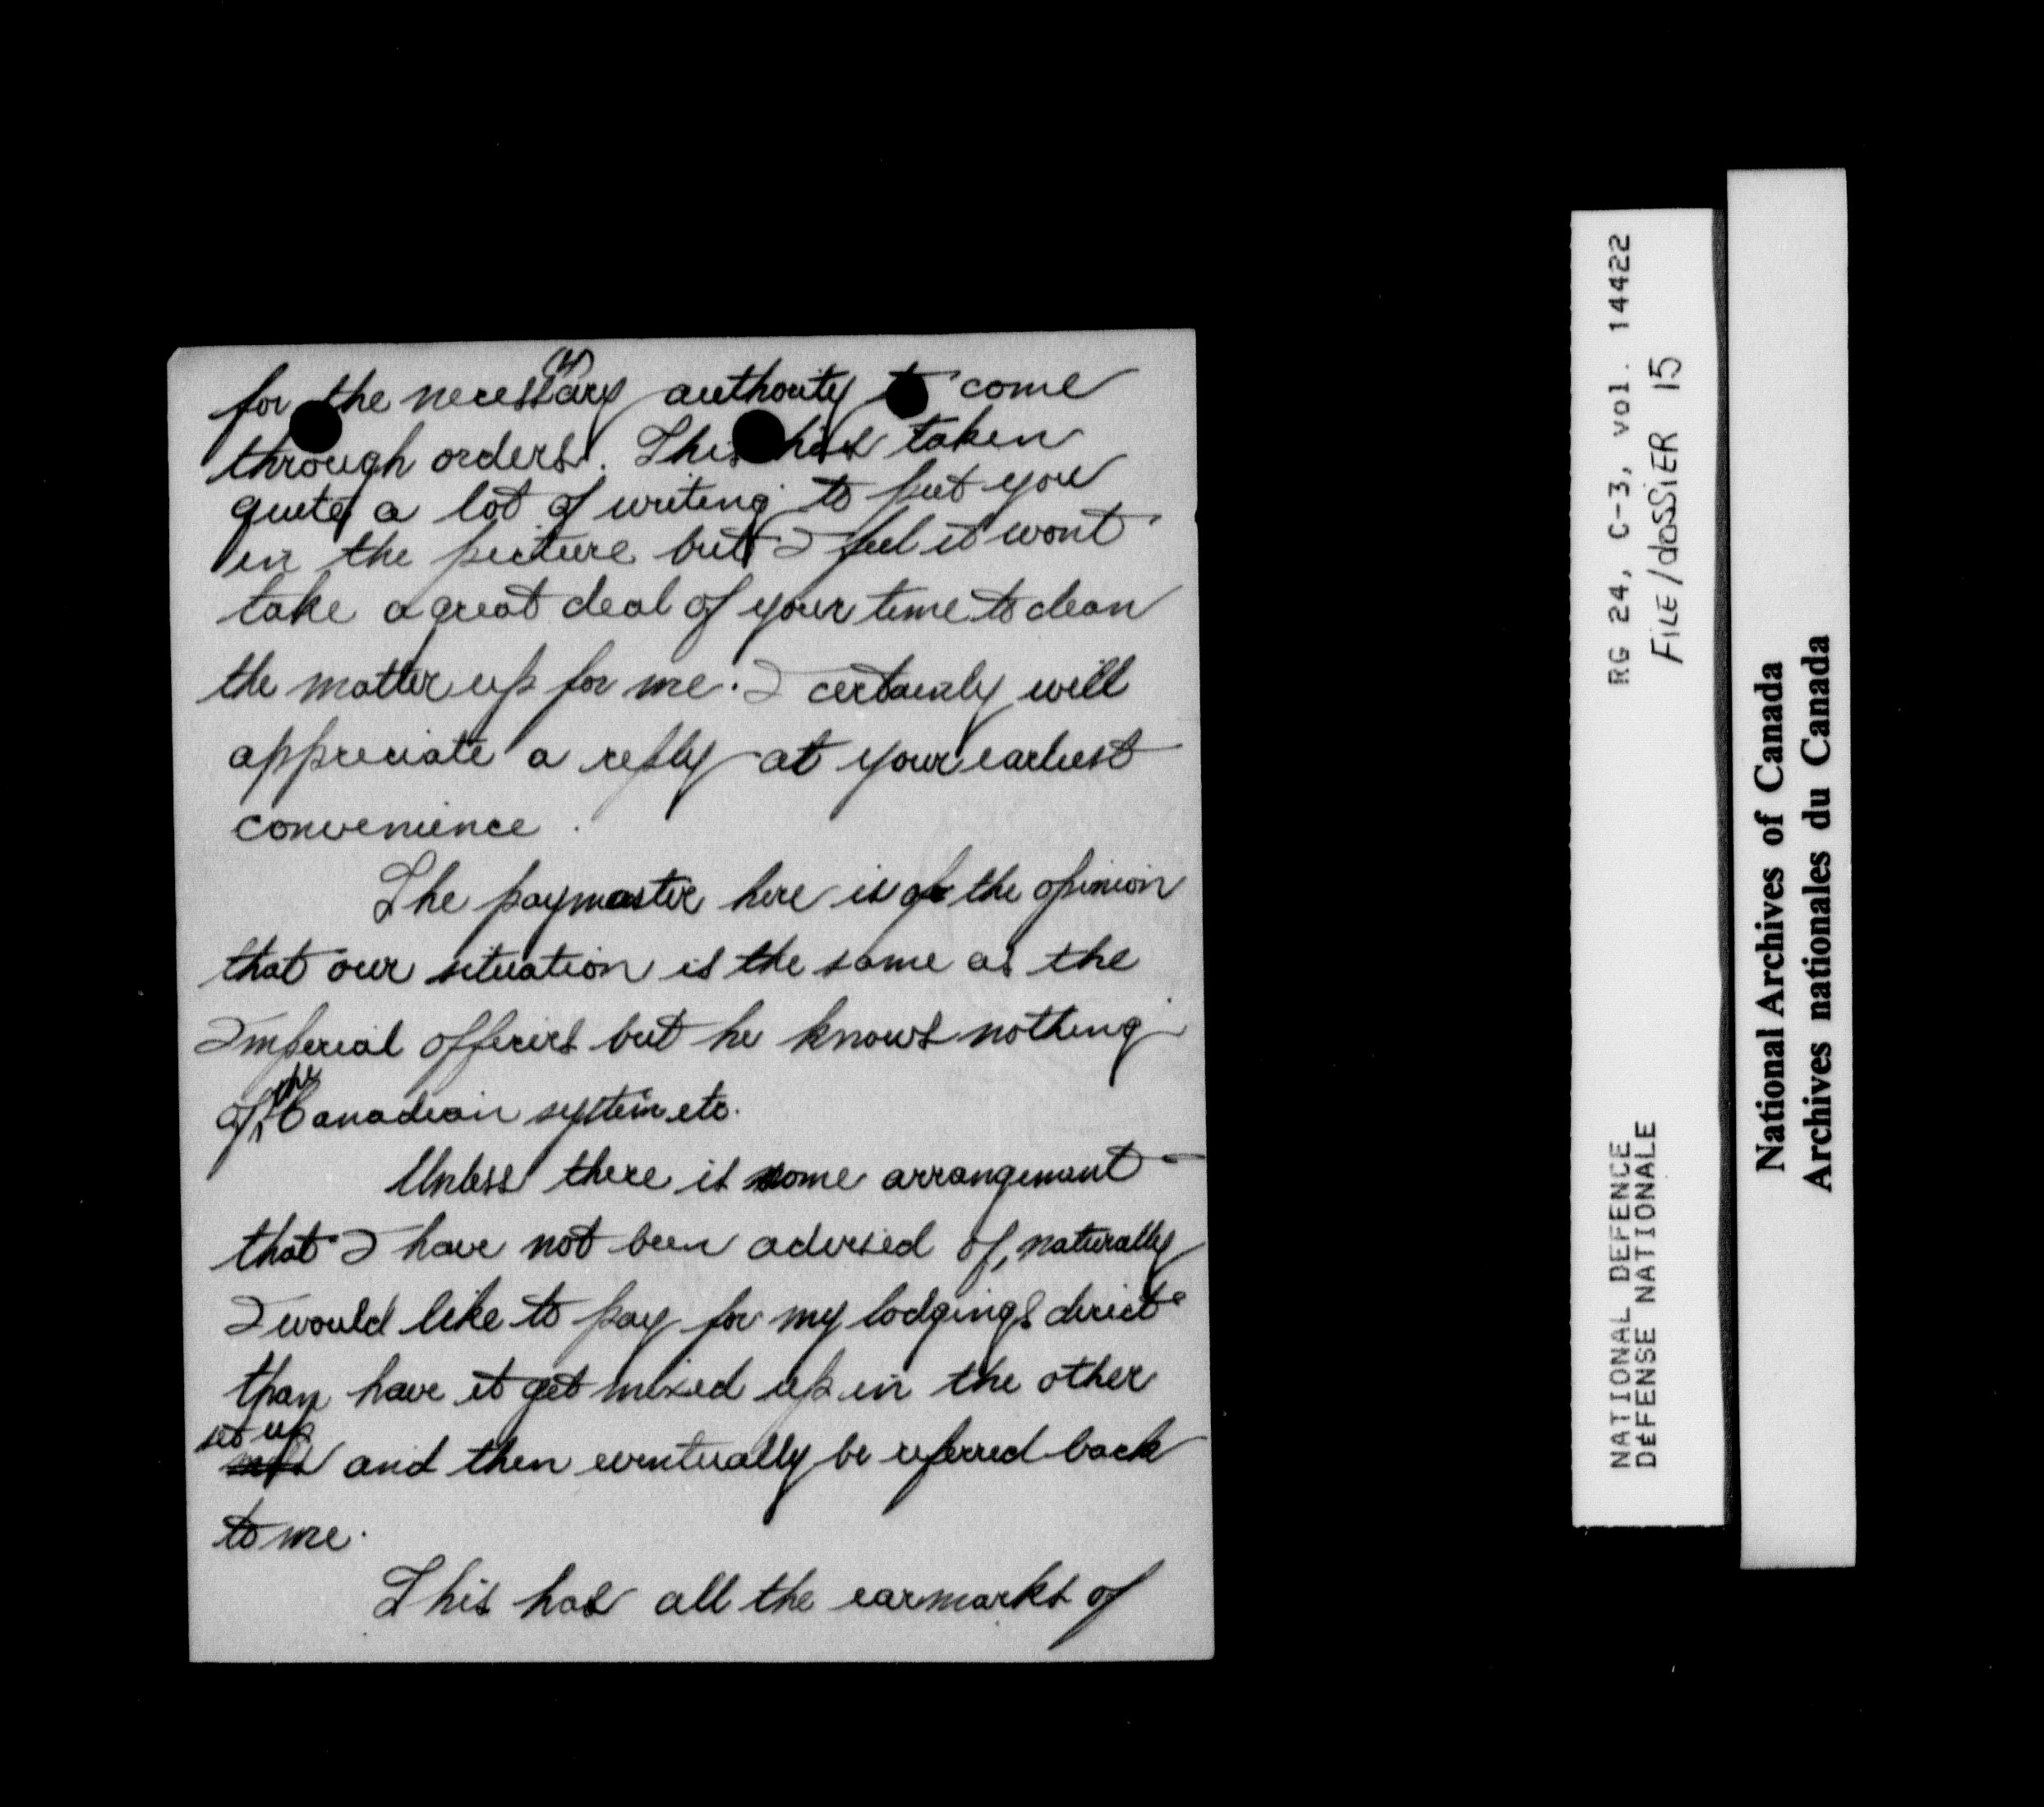 for the necessary authority to come
through orders. This has taken
quite a lot of writing to put you
in the picture but I feel it wont
take a great deal of your time to clean
the matter up for me. I certainly will
appreciate a reply at your earliest
convenience.
The paymaster here is of the opinion
that our situation is the same as the
Imperial officers but he knows nothing
of the Canadian system etc.
Unless there is some arrangement
that I have not been advised of, naturally
I would like to pay for my lodgings direct
than have it get mixed up in the other
set up
and then eventually be referred back
to me.
This has all the earmarks of
RG 24, C-3, vol. 14422
FILE/dOSSiER 15
NATIONAL DEFENCE
DÉFENSE NATIONALE
National Archives of Canada
Archives nationales du Canada